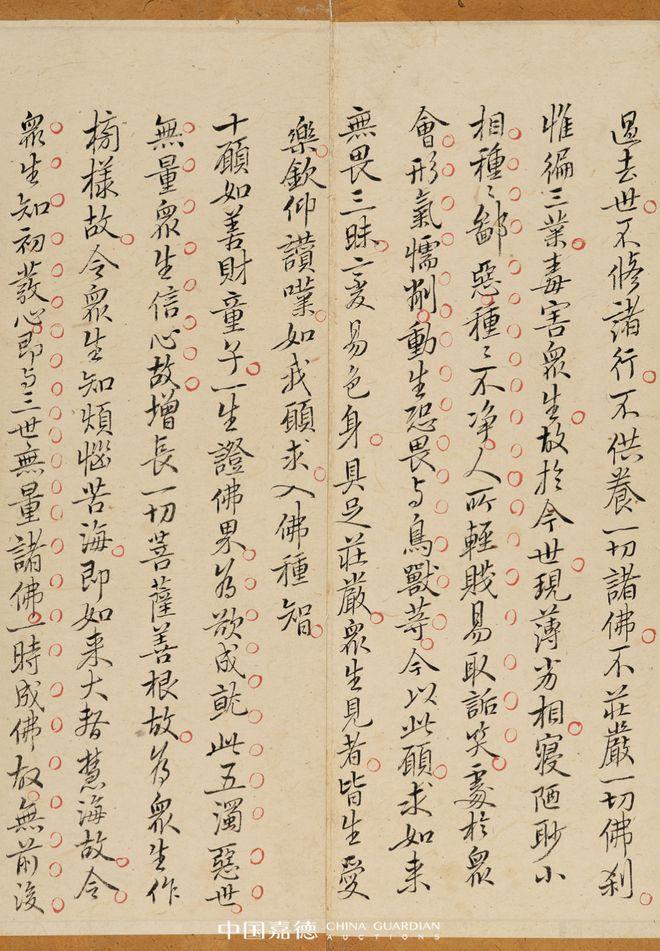 過去世不修諸行不供養一切諸佛不莊嚴一切佛刹
惟徧三業毒害眾生故於今世現薄劣相寢陋眇小
相種〻鄙惡種〻不净人所輕賤易取詬笑處於眾
會形氣懦削動生恐畏与鳥獸等今以此願求如来
無畏三昧言変易色身具足莊嚴眾生見者皆生愛
樂欽仰讃嘆如我願求入佛種智
十願如善財童子一生證佛果為欲成就此五濁惡世
無量眾生信心故增長一切菩薩善根故為眾生作
榜樣故令眾生知煩惱苦海即如来大智慧海故令
眾生知初發心即与三世無量諸佛一時成佛故無前後
中国嘉德 CHINA GUARDIAN AUCTIONS